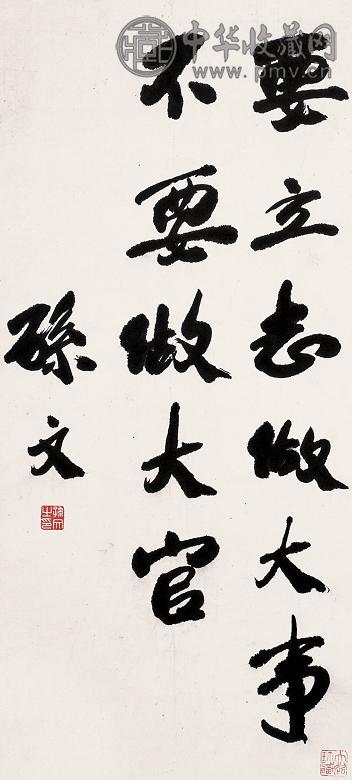 中华收藏网
www.pmv.cn
要立志做大事
不要做大官
孫文
孫文之印